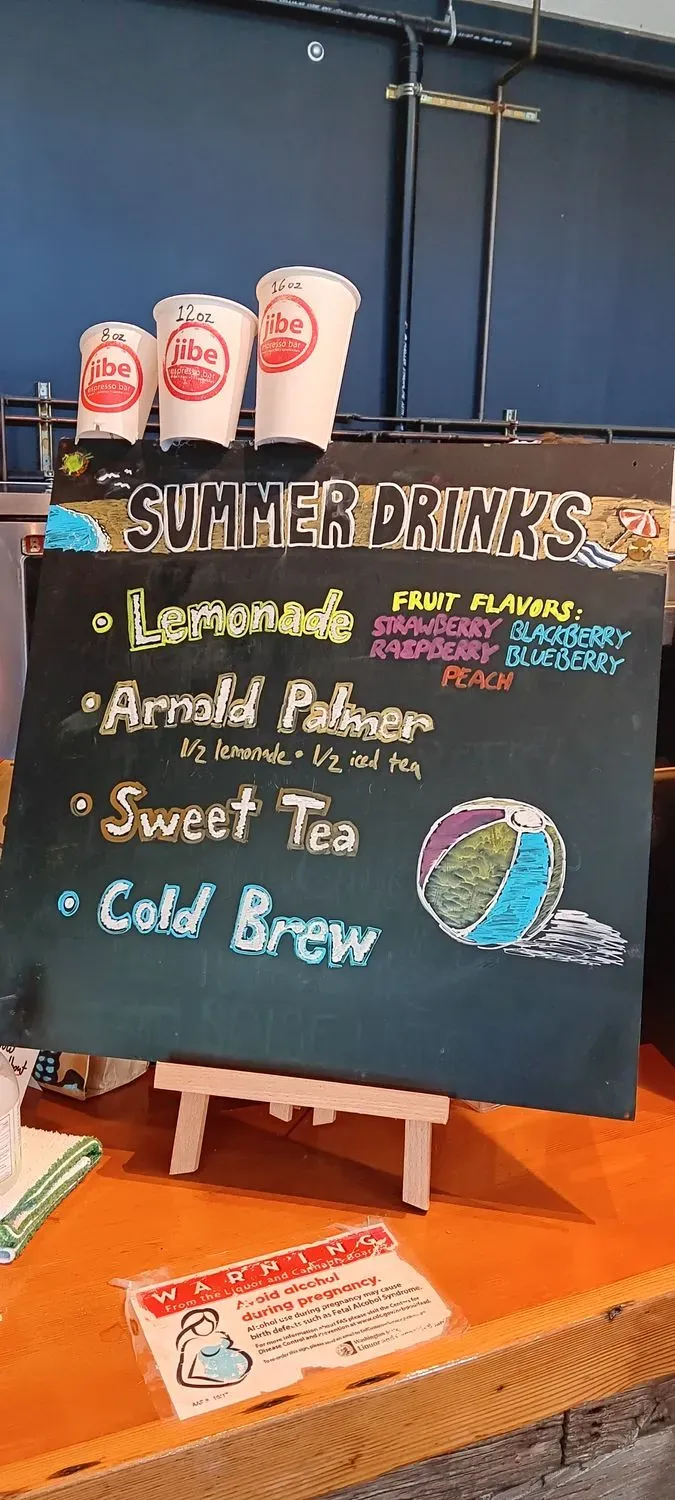 8 oz
12 oz
16 oz
jibe
espresso bar
jibe
espresso bar
jibe
espresso bar
SUMMER DRINKS
• Lemonade
FRUIT FLAVORS:
STRAWBERRY BLACKBERRY
RASPBERRY BLUEBERRY
PEACH
• Arnold Palmer
1/2 lemonade • 1/2 iced tea
• Sweet Tea
• Cold Brew
WARNING
From the Liquor and Cannabis Board
Avoid alcohol
during pregnancy.
Alcohol use during pregnancy may cause
birth defects such as Fetal Alcohol Syndrome.
For more information about FAS please visit the Centers for
Disease Control and Prevention at
Washington
Liquor and